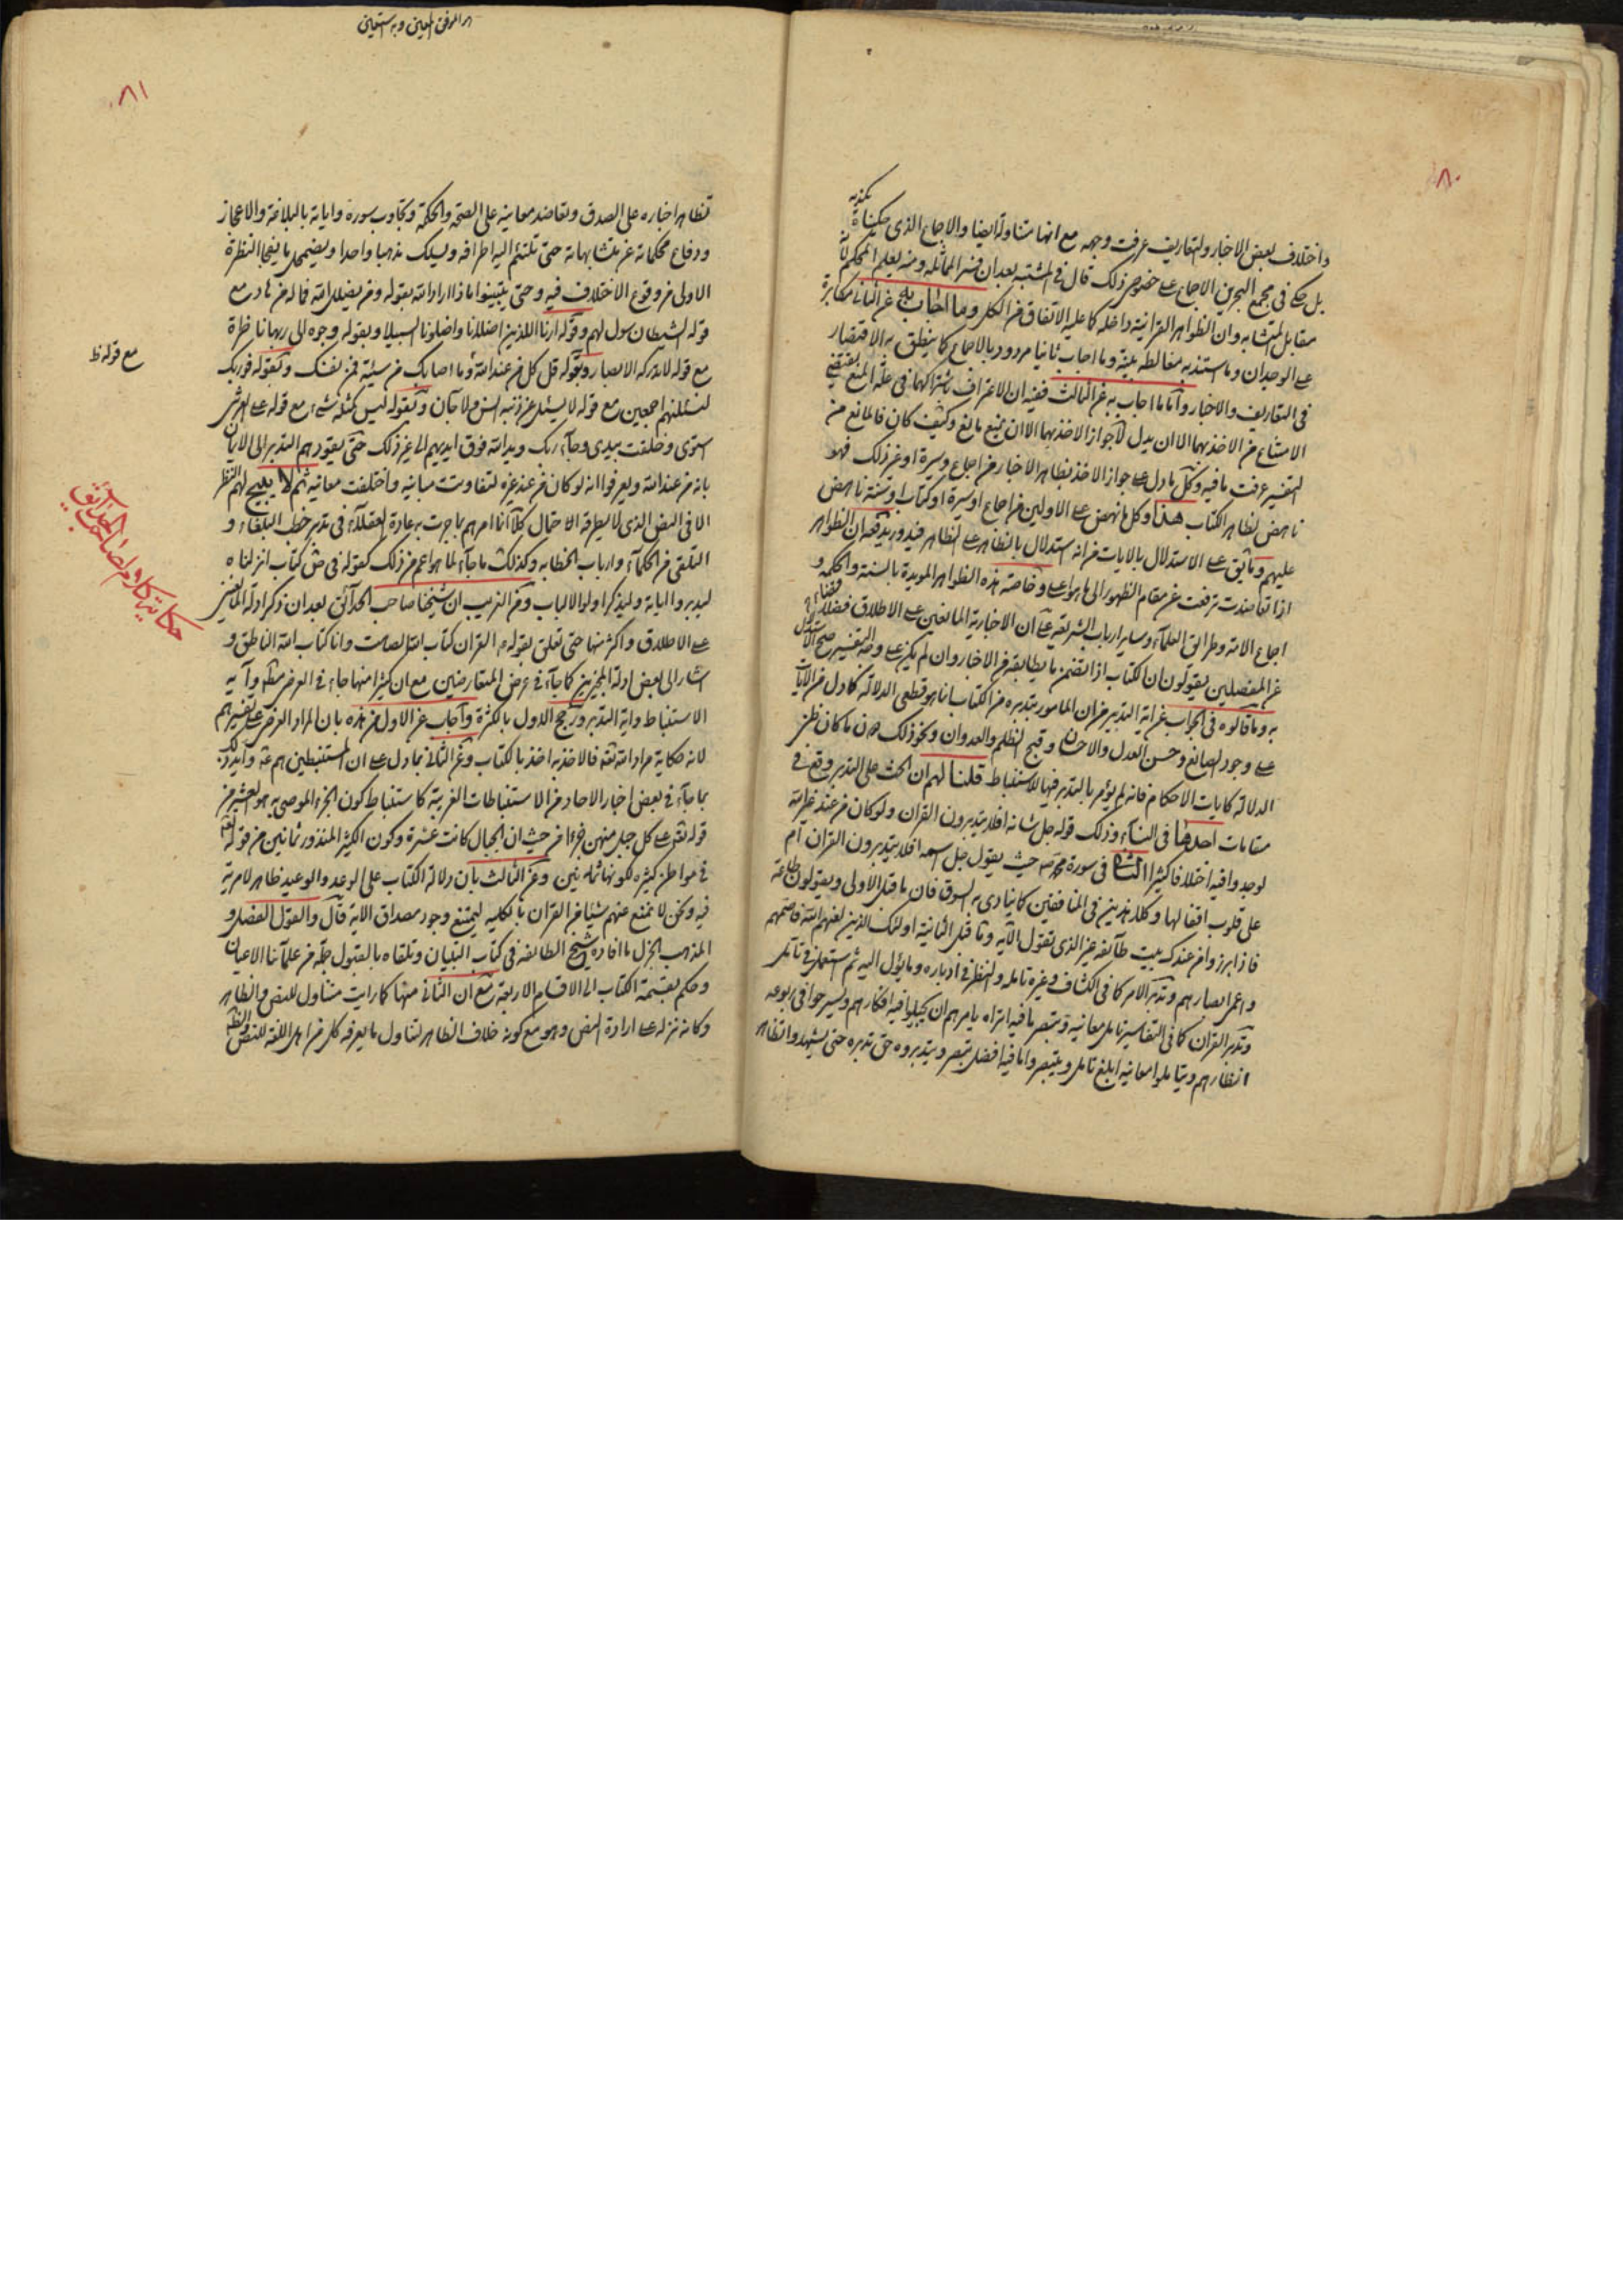 ٨٠
واختلاف بعض الاخبار والتعاريف عرفت وجهه مع انها متناولة ايضا والاجماع الذى حكيناه
بل حكى فى مجمع البحرين الاجماع على خصوص ذلك قال فى المشتبه بعد ان فسر المماثله ومنه يعلم المحكم لانه
مقابل المتشابه وان الظواهر القرانية داخله كما عليه الاتفاق من الكل وما اجاب به عن الثانى مكابرة
على الوجدان وما استند به مغالطه بينة وما اجاب ثانيا مردود بالاجماع كما ينطق به الاقتصار
فى التعاريف والاخبار واما ما اجاب به عن الثالث ففيه ان الاعتراف باشتراكهما فى علة المنع يقتضى
الامتناع من الاخذ بهما الا ان يدل لجواز الاخذ بهما الا ان يمنع مانع وكيف كان فالمانع من
التفسير عرفت ما فيه وكل ما دل على جواز الاخذ بظاهر الاخبار من اجماع وسيرة او غير ذلك فهو
ناهض لظاهر الكتاب هذا وكل ما نهض على الاولين من اجماع او سيرة او كتاب او سنة ناهض
عليهم وما يق على الاستدلال بالايات من انه استدلال بالظاهر على الظاهر فيدور يدفعه ان الظواهر
اذا تعاضدت ترقت عن مقام الظهور الى ما هو اعلى وخاصة هذه الظواهر المويدة بالسنة والحكمه و
اجماع الامة وطرائق العلمآء وساير ارباب الشريعة على ان الاخبارية المانعين على الاطلاق فضلا
عن المفصلين يقولون ان الكتاب اذا تضمن ما يطابقه من الاخبار وان لم يكن على وجه التفسير صح الاستدلال
به وما قالوه فى الجواب عن اية التدبر من ان المامور بتدبره من الكتاب انما هو قطعى الدلالة كما دل من الايات
على وجود الصانع وحسن العدل والاحسان وقبح الظلم والعدوان ونحو ذلك دون ما كان ظنى
الدلالة كايات الاحكام فانه لم يؤمر بالتدبر فيها للاستنباط قلنا لهم ان الحث على التدبر وقع فى
مقامات احدها فى النسآء وذلك قوله جل شانه افلا يتدبرون القران ولو كان من عند غير الله
لوجدوا فيه اختلافا كثيرا الثانى فى سورة محمد ص حيث يقول جل اسمه افلا يتدبرون القران ام
على قلوب اقفالها وكلا هذين فى المنافقين كما ينادى به السوق فان ما قبل الاولى ويقولون طاعة
فاذا برزوا من عندك بيت طآئفة غير الذى تقول الآية وما قبل الثانية اولئك الذين لعنهم الله فاصمهم
واعمى ابصارهم وتدبر الامر كما فى الكشاف وغيره تامله والنظر فى ادباره وما يؤل اليه ثم استعمل فى تامل
وتدبر القران كما فى التفاسير تامل معانيه وتبصر ما فيه اتراه يامرهم ان يجيلوا فيه افكارهم ويسرحوا فى ربوعه
انظارهم ويتاملوا معانيه ابلغ تامل ويتبصروا ما فيه افضل تبصر ويتدبروه حق تدبره حتى يشهدوا تظاهر
٨١
تظاهر اخباره على الصدق وتعاضد معانيه على الصحة والحكمة وتجاوب سوره واياته بالبلاغة والاعجاز
ودفاع محكماته عن متشابهاته حتى تلتئم اليه اطرافه ويسلك مذهبا واحدا ويضمحل ما يفجا النظرة
الاولى من وقوع الاختلاف فيه وحتى يتبينوا ماذا اراد الله بقوله ومن يضلل الله فما له من هاد مع
قوله الشيطان سول لهم وقوله ارنا اللذين اضلانا واضلونا السبيلا وبقوله وجوه الى ربها ناظرة
مع قوله لا تدركه الابصار وبقوله قل كل من عند الله وما اصابك من سيئة فمن نفسك وبقوله فوربك
مع قوله ظ
لنسئلنهم اجمعين مع قوله لا يسئل عن ذنبه انس ولا جان وبقوله ليس كمثله شىء مع قوله على العرش
استوى وخلقت بيدى وجآء ربك ويد الله فوق ايديهم الى غير ذلك حتى يقودهم التدبر الى الايمان
بانه من عند الله ويعرفوا انه لو كان من عند غيره لتفاوتت مبانيه واختلفت معانيه ثم لا يبيح لهم النظر
الا فى النص الذى لا يطرقه الاحتمال كلا انما امرهم بما جرت به عادة العقلآء فى تدبر خطب البلغاء و
التلقى من الحكمآء وارباب الخطابه وكذلك ما جآء لما هو اعم من ذلك كقوله فى ص كتاب انزلناه
ليدبروا اياته وليذكر اولو الالباب ومن الغريب ان شيخنا صاحب الحدآئق بعد ان ذكر ادلة المانعين
حكاية كلام لصاحب الحدائق
على الاطلاق واكثر منها حتى تعلق بقوله ع القران كتاب الله الصامت وانا كتاب الله الناطق و
اشار الى بعض ادلة المجيزين كما جآء فى عرض المتعارضين مع ان كثيرا منها جاء فى العرض مطلقا وآية
الاستنباط واية التدبر ورجح الاول بالكثرة واجاب عن الاول من هذه بان المراد العرض على تفسيرهم
لانه حكاية مراد الله تعه فالاخذ به اخذ بالكتاب وعن الثانى بما دل على ان المستنبطين هم ع وايد ذلك
بما جآء فى بعض اخبار الاحاد من الاستنباطات الغريبة كاستنباط كون الجزء الموصى به هو العشر من
قوله تعه على كل جبل منهن جزءا من حيث ان الجبال كانت عشرة وكون الكثير المنذور ثمانين من قوله تعه
فى مواطن كثيره لكونها ثمانين وعن الثالث بان دلالة الكتاب على الوعد والوعيد ظاهر لا مرية
فيه ونحن لا نمنع فهم شيئا من القران بالكليه ليمتنع وجود مصداق الاية قال والقول الفصل و
المذهب الجزل ما افاده شيخ الطائفه فى كتاب التبيان وتلقاه بالقبول جملة من علمآئنا الاعيان
وحكم بقسمة الكتاب الى الاقسام الاربعة مع ان الثانى منها كما رايت متناول للنص والظاهر
وكانه نزله على ارادة النص وهو مع كونه خلاف الظاهر لتناول ما يعرفه كل من اهل اللغة للنص والظاهر